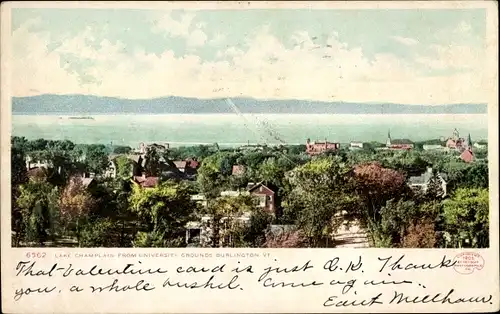 6762 LAKE CHAMPLAIN FROM UNIVERSITY GROUNDS BURLINGTON VT
That Valentine card is just O.K. Thank
you, a whole bushil. Come again,
East Millham